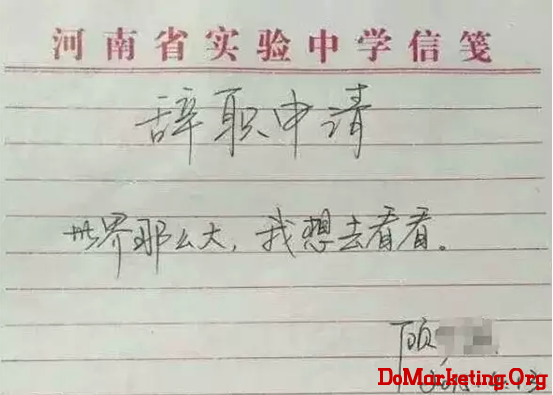 河南省实验中学信笺
辞职申请
世界那么大，我想去看看。
顾
DoMarketing.Org